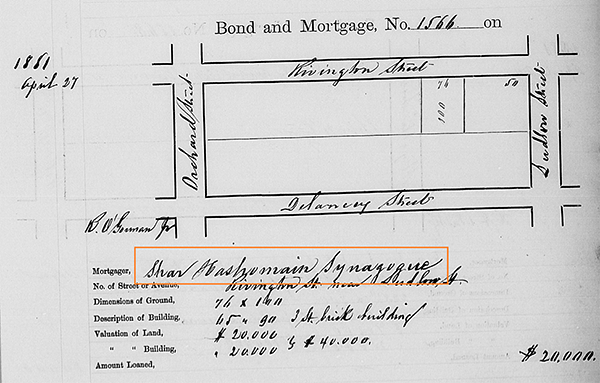 Bond and Mortgage, No. 1566 on
1861
April 27
Rivington Street
76
50
100
Orchard Street
Ludlow Street
Delancey Street
R. O'Gorman Jr
Mortgager, Shar Hashomain Synagogue
No. of Street or Avenue, Rivington St. near Ludlow St.
Dimensions of Ground, 76 x 100
Description of Building, 65 " 90 3 St. brick building
Valuation of Land, $ 20.000
" " Building, " 20.000 } $ 40.000.
Amount Loaned, $ 20.000.